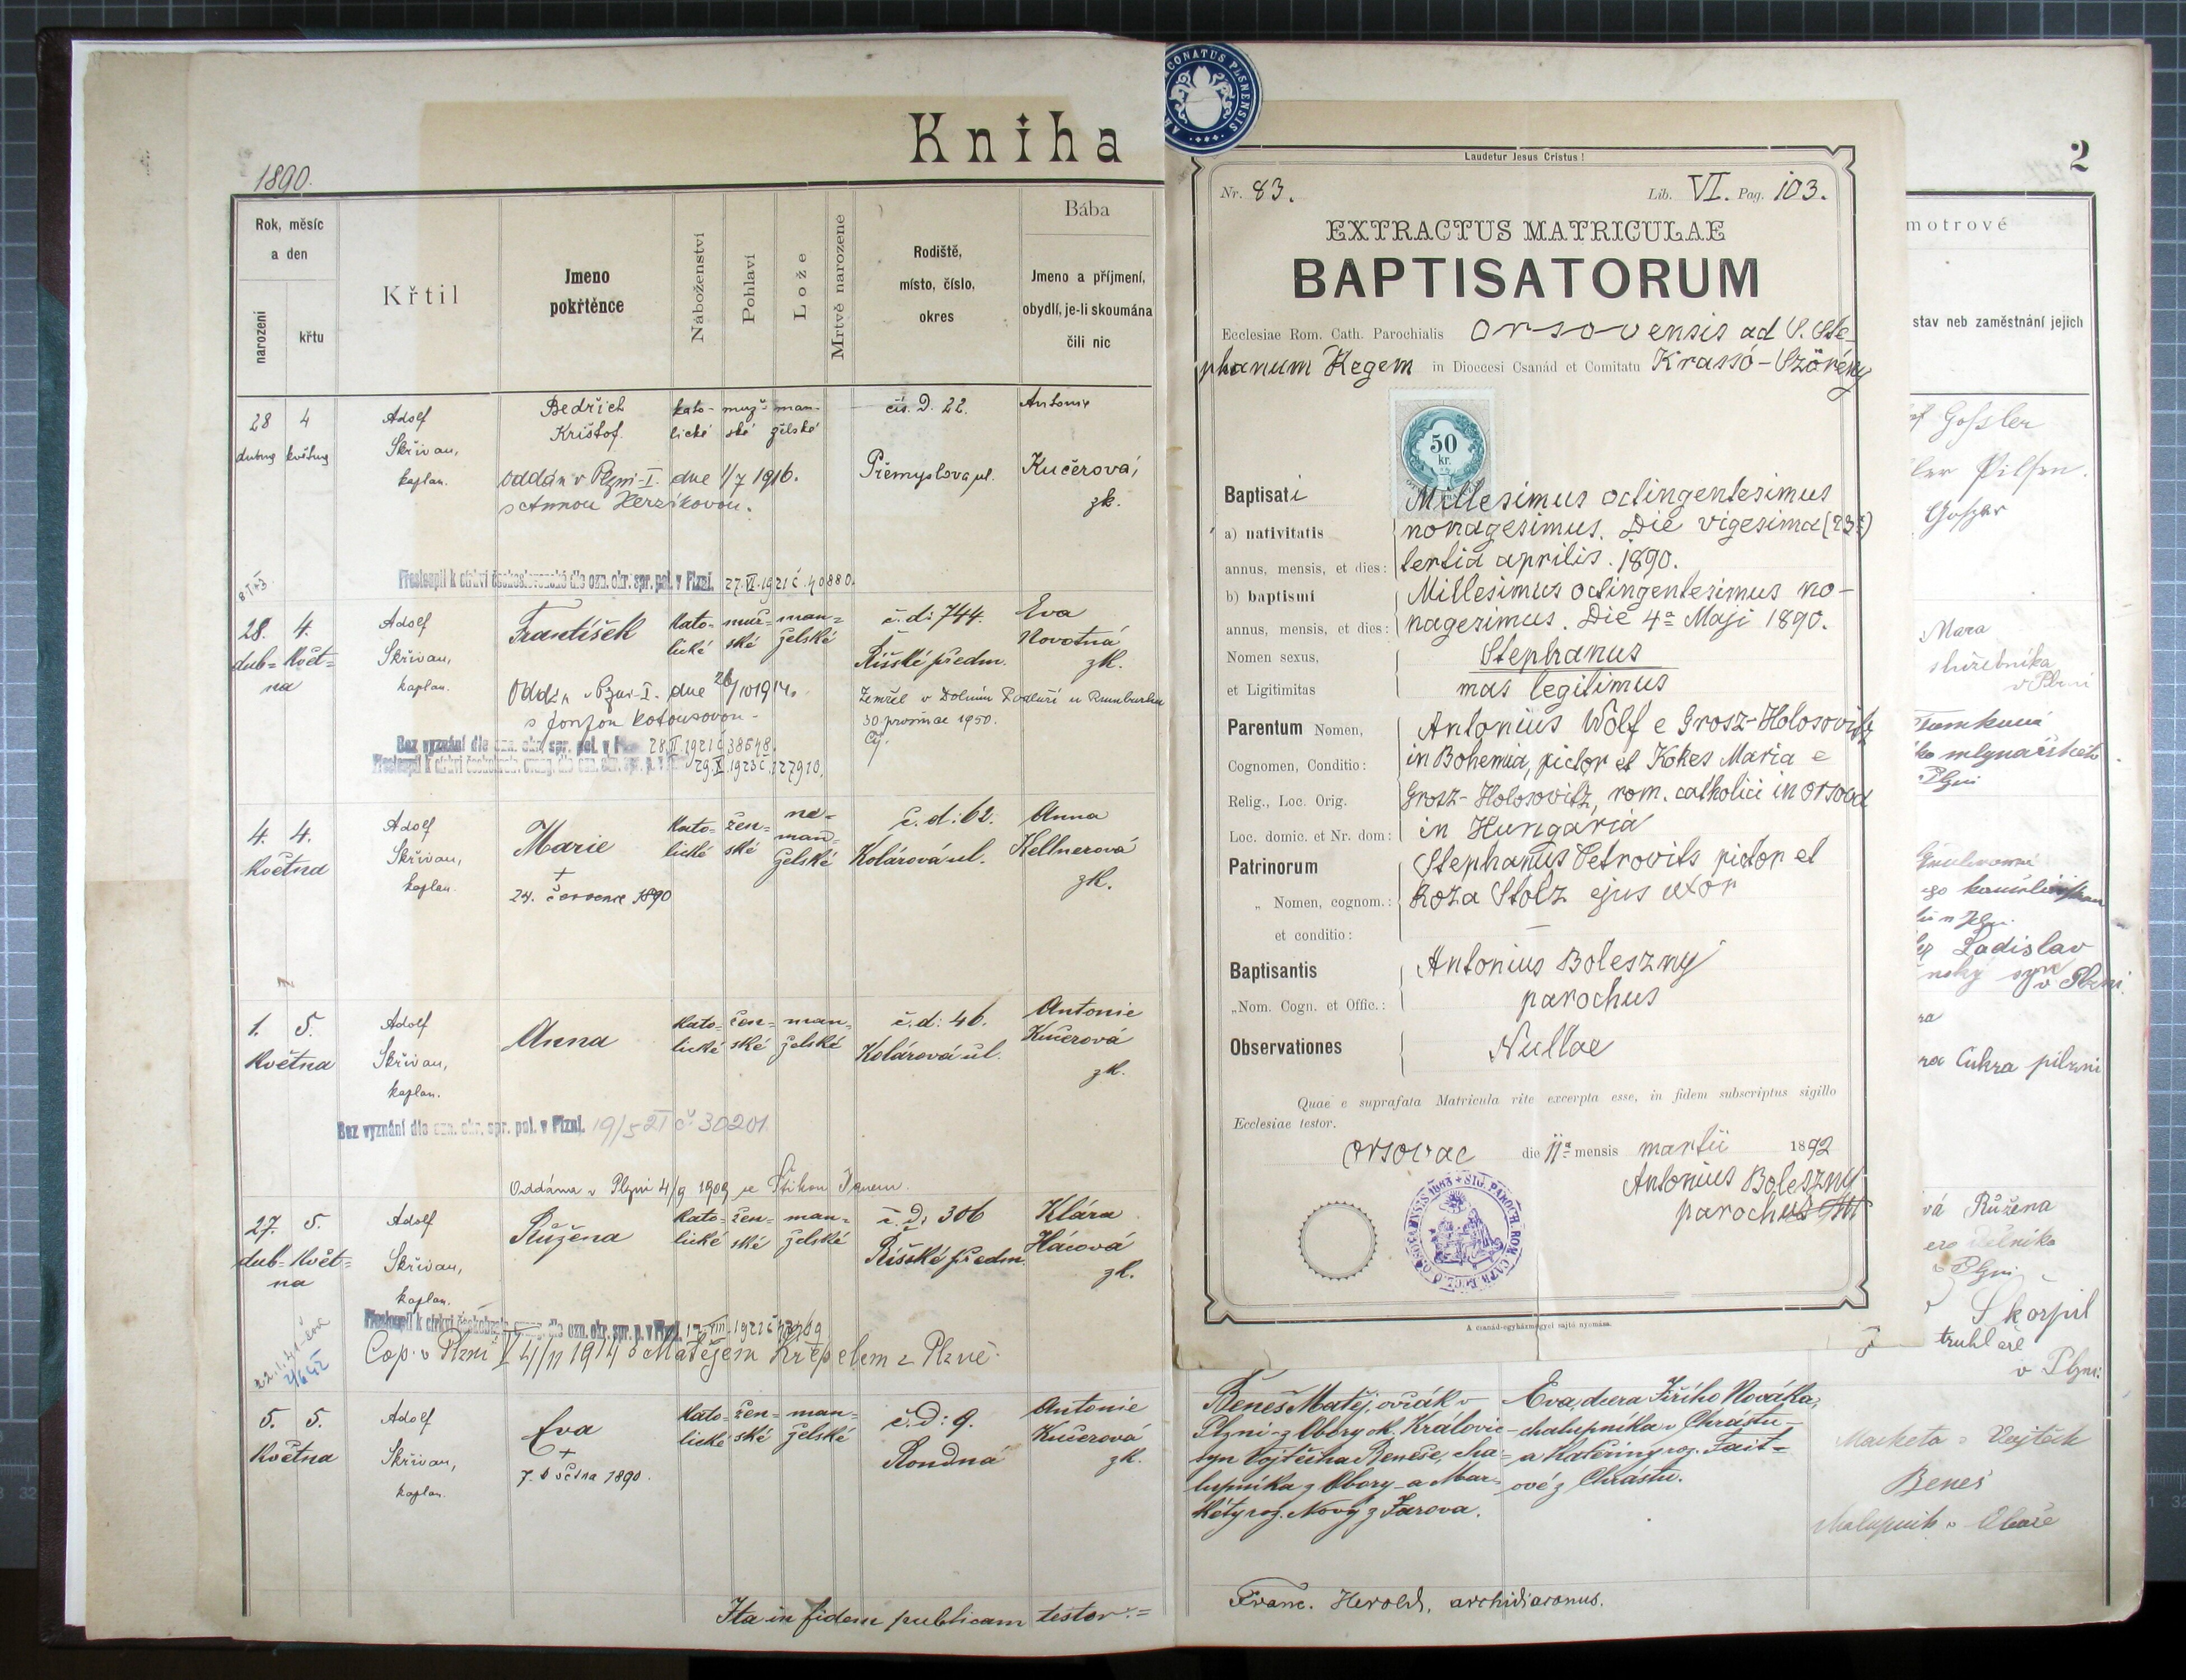 Kniha
1890.
Rok, měsíc
a den
narození
křtu
Křtil
Jmeno
pokřtěnce
Náboženství
Pohlaví
Lože
Mrtvě narozene
Rodiště,
místo, číslo,
okres
Bába
Jmeno a příjmení,
obydlí, je-li skoumána
čili nic
28 4
dubna května
Adolf
Skřivan,
kaplan.
Bedřich
Krištof.
kato- muž- man-
lické ské želské
čís. D. 22.
Přemyslova ul.
Antonie
Kučerová,
zk.
Oddán v Plzni-I. dne 1/7 1916.
s Annou
Přestoupil k církvi československé dle ozn. okr. spr. pol. v Plzni. 27.VI.1921 č. 40880.
28. 4.
dub- Květ-
na
Adolf
Skřivan,
kaplan.
František
Kato- muž- man-
lické ské želské
č. d: 744.
Říšské předm.
Eva
Novotná
zk.
Oddán v Plzni-I. dne 26/10 1914.
Zemřel v Dolním Podluží u Rumburku
30 prosince 1950.
Bez vyznání dle ozn. okr. spr. pol. v Plzni 28.II.1921 č. 38548.
Přestoupil k církvi českobratr. evang. dle ozn. okr. spr. p. v Plzni 29.X.1923 č. 127910.
4. 4.
Května
Adolf
Skřivan,
kaplan.
Marie
+
24. července 1890
Kato- žen- ne-
lické ské man-
želské
č. d: 62.
Kolárová ul.
Anna
Kellnerová
zk.
1. 5.
Května
Adolf
Skřivan,
kaplan.
Anna
Kato- žen- man-
lické ské želské
č. d: 46.
Kolárová ul.
Antonie
Kučerová
zk.
Bez vyznání dle ozn. okr. spr. pol. v Plzni. 19/5 21 č 30201.
Oddána v Plzni 4/9 1909 se
27. 5.
dub- Květ-
na
Adolf
Skřivan,
kaplan.
Růžena
Kato- žen- man-
lické ské želské
č. D: 306
Říšské předm.
Klára
Hácová
zk.
Přestoupil k církvi českobratr. evang. dle ozn. okr. spr. p. v Plzni
Cop. v Plzni 4/11 1914 s Matějem Křepelem z Plzně.
5. 5.
Května
Adolf
Skřivan,
kaplan.
Eva
+
7. května 1890.
Kato- žen- man-
lické ské želské
č. D: 9.
Rondná
Antonie
Kučerová
zk.
Ita in fidem publicam testor:=
Laudetur Jesus Cristus!
Nr. 83. Lib. VI. Pag. 103.
EXTRACTUS MATRICULAE
BAPTISATORUM
Ecclesiae Rom. Cath. Parochialis Orsovensis ad S. Ste-
phanum Regem in Dioecesi Csanád et Comitatu Krassó-Szörény
50
kr.
Baptisati
a) nativitatis
annus, mensis, et dies:
Millesimus octingentesimus
nonagesimus. Die vigesima (23a)
tertia aprilis. 1890.
b) baptismi
annus, mensis, et dies:
Millesimus octingentesimus no-
nagesimus. Die 4a Maji 1890.
Nomen sexus,
et Ligitimitas
Stephanus
mas legitimus
Parentum Nomen,
Cognomen, Conditio:
Relig., Loc. Orig.
Loc. domic. et Nr. dom:
Antonius Wolf e Grosz-Holosovitz
in Bohemia, pictor et Kokes Maria e
Grosz-Holosovitz, rom. catholici in Orsova
in Hungaria
Patrinorum
„ Nomen, cognom.:
et conditio:
Stephanus Petrovits pictor et
Roza Stolz ejus uxor
Baptisantis
„Nom. Cogn. et Offic.:
Antonius Boleszny
parochus
Observationes
Nullae
Quae e suprafata Matricula rite excerpta esse, in fidem subscriptus sigillo
Ecclesiae testor.
Orsovae die 11a mensis martii 1892
Antonius Boleszny
parochus
A csanád-egyházmegyei sajtó nyomása.
2
motrové
stav neb zaměstnání jejich
Gossler
Pilsen.
Mara
v Plzni
mlynářského
Plzni
Ladislav
v Plzni.
Cukra pilzni
vá Růžena
v Plzni
Škorpil
truhlář
v Plzni:
Beneš Matěj, ovčák v
Plzni z Obory ok. Královic
syn Vojtěcha Beneše, cha-
lupníka z Obory a Mar-
kéty roz. Nový z Žarova.
Eva, dcera Jiřího Nováka,
chalupníka v Chrástu
a Kateřiny roz. Fait-
ové z Chrástu.
Marketa a Vojtěch
Beneš
chalupník v Oboře
Franc. Herold, archidiaconus.